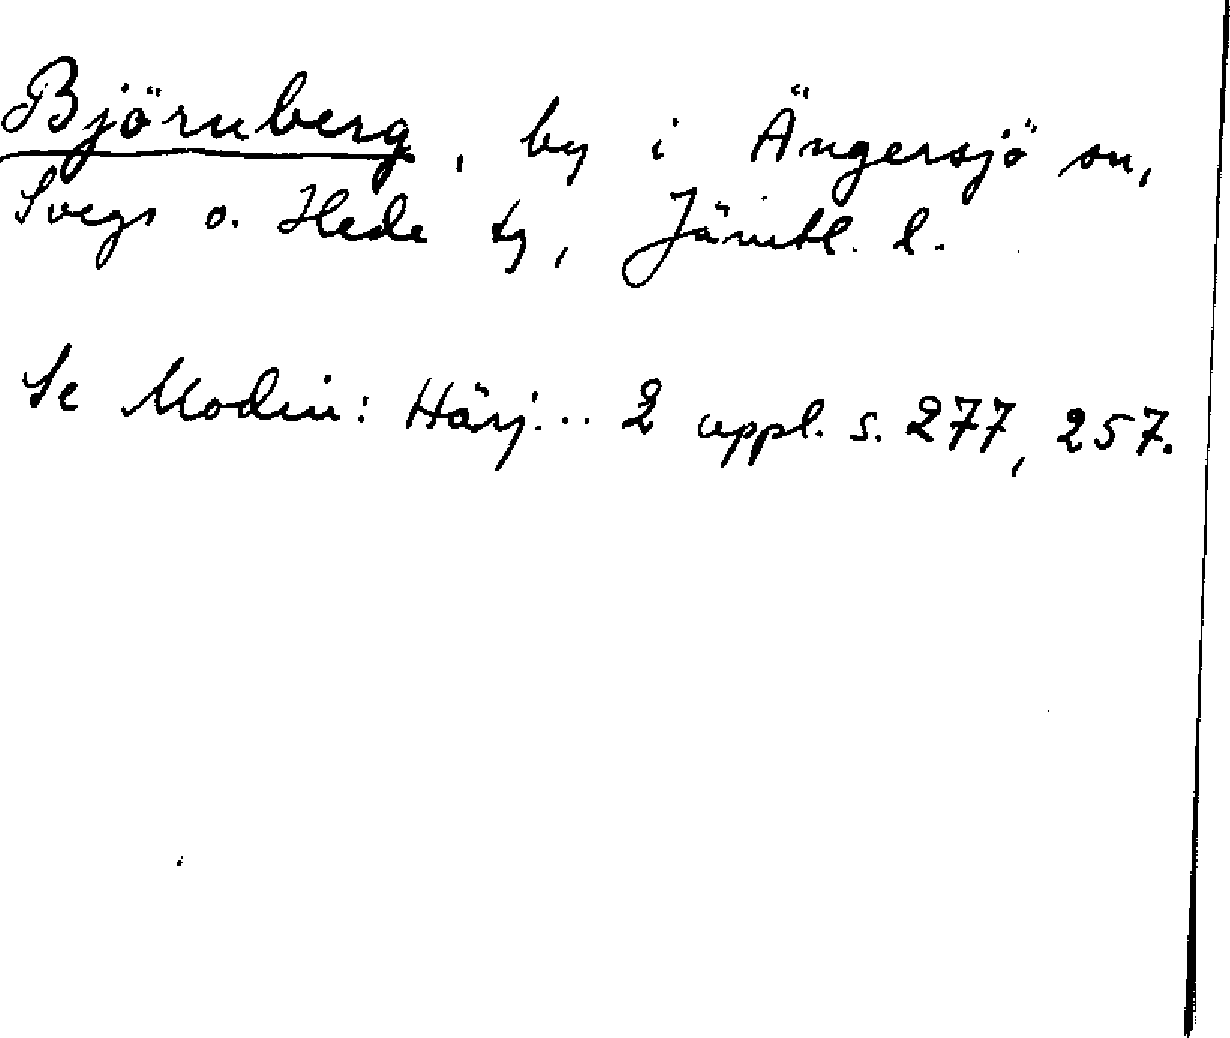 Björnberg, by i Ängersjö sn,
Svegs o. Hede tg, Jämtl. l.
Se Modin: Härj... 2 uppl. s. 277, 257.